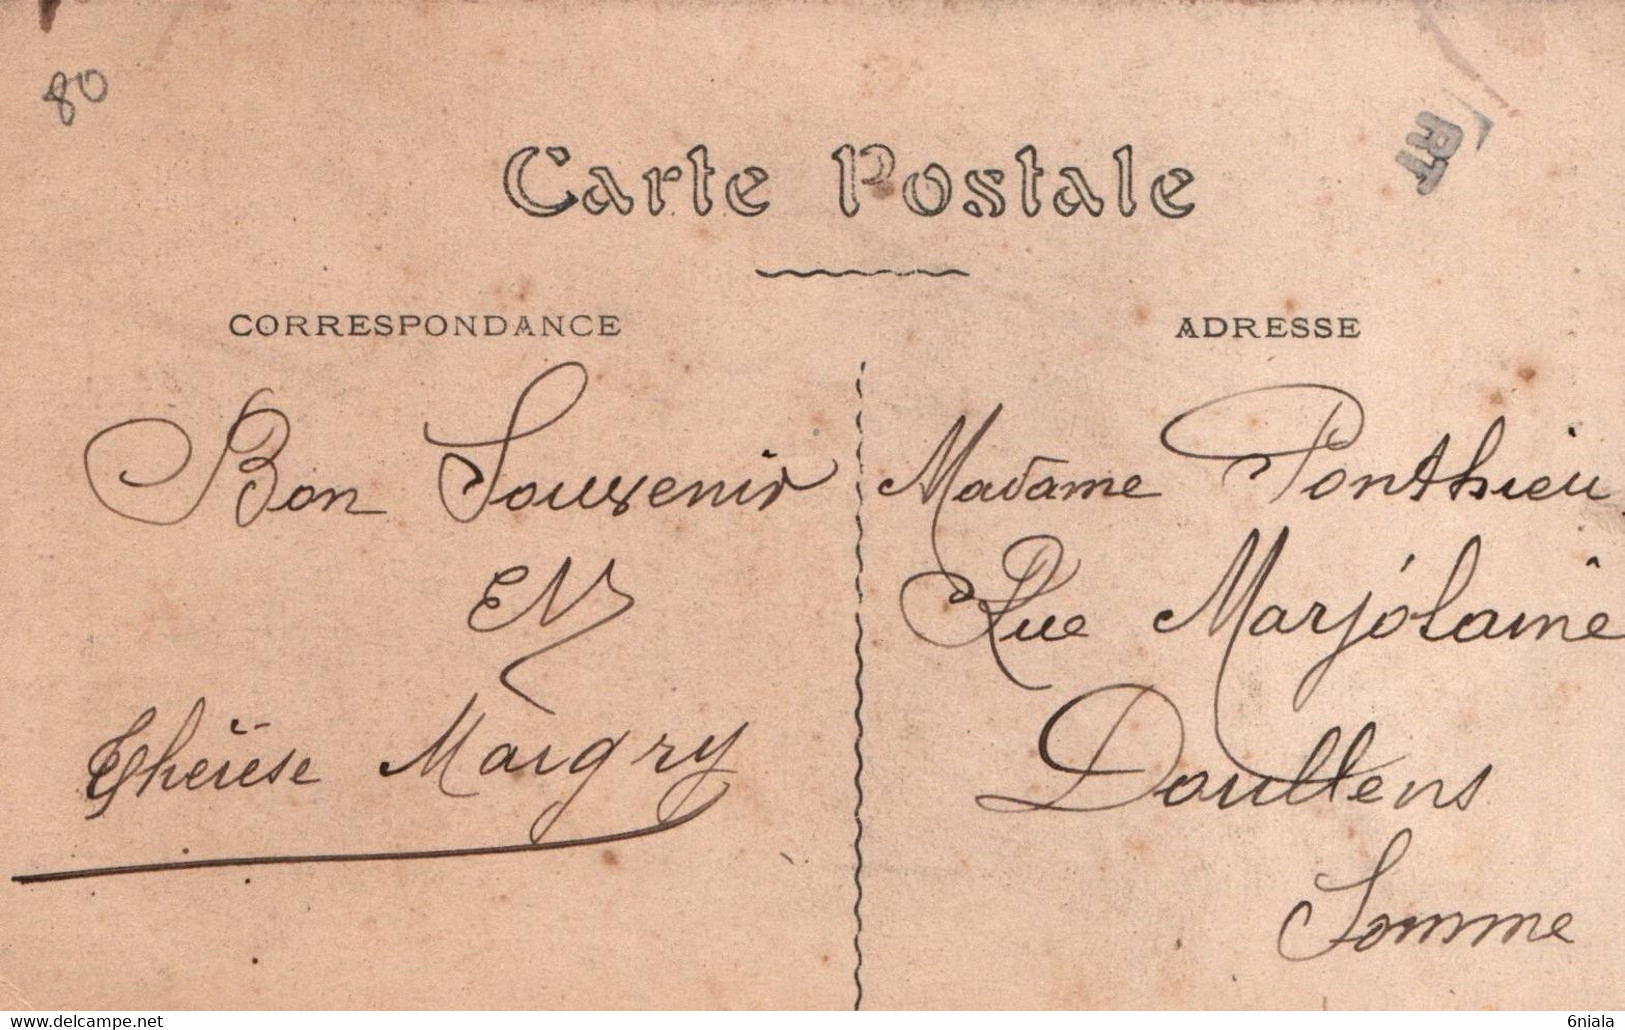 80
RT
Carte Postale
CORRESPONDANCE
Bon Souvenir
Thérèse Maigry
ADRESSE
Madame Ponthieu
Rue Marjolaine
Doullens
Somme
www.delcampe.net
6niala